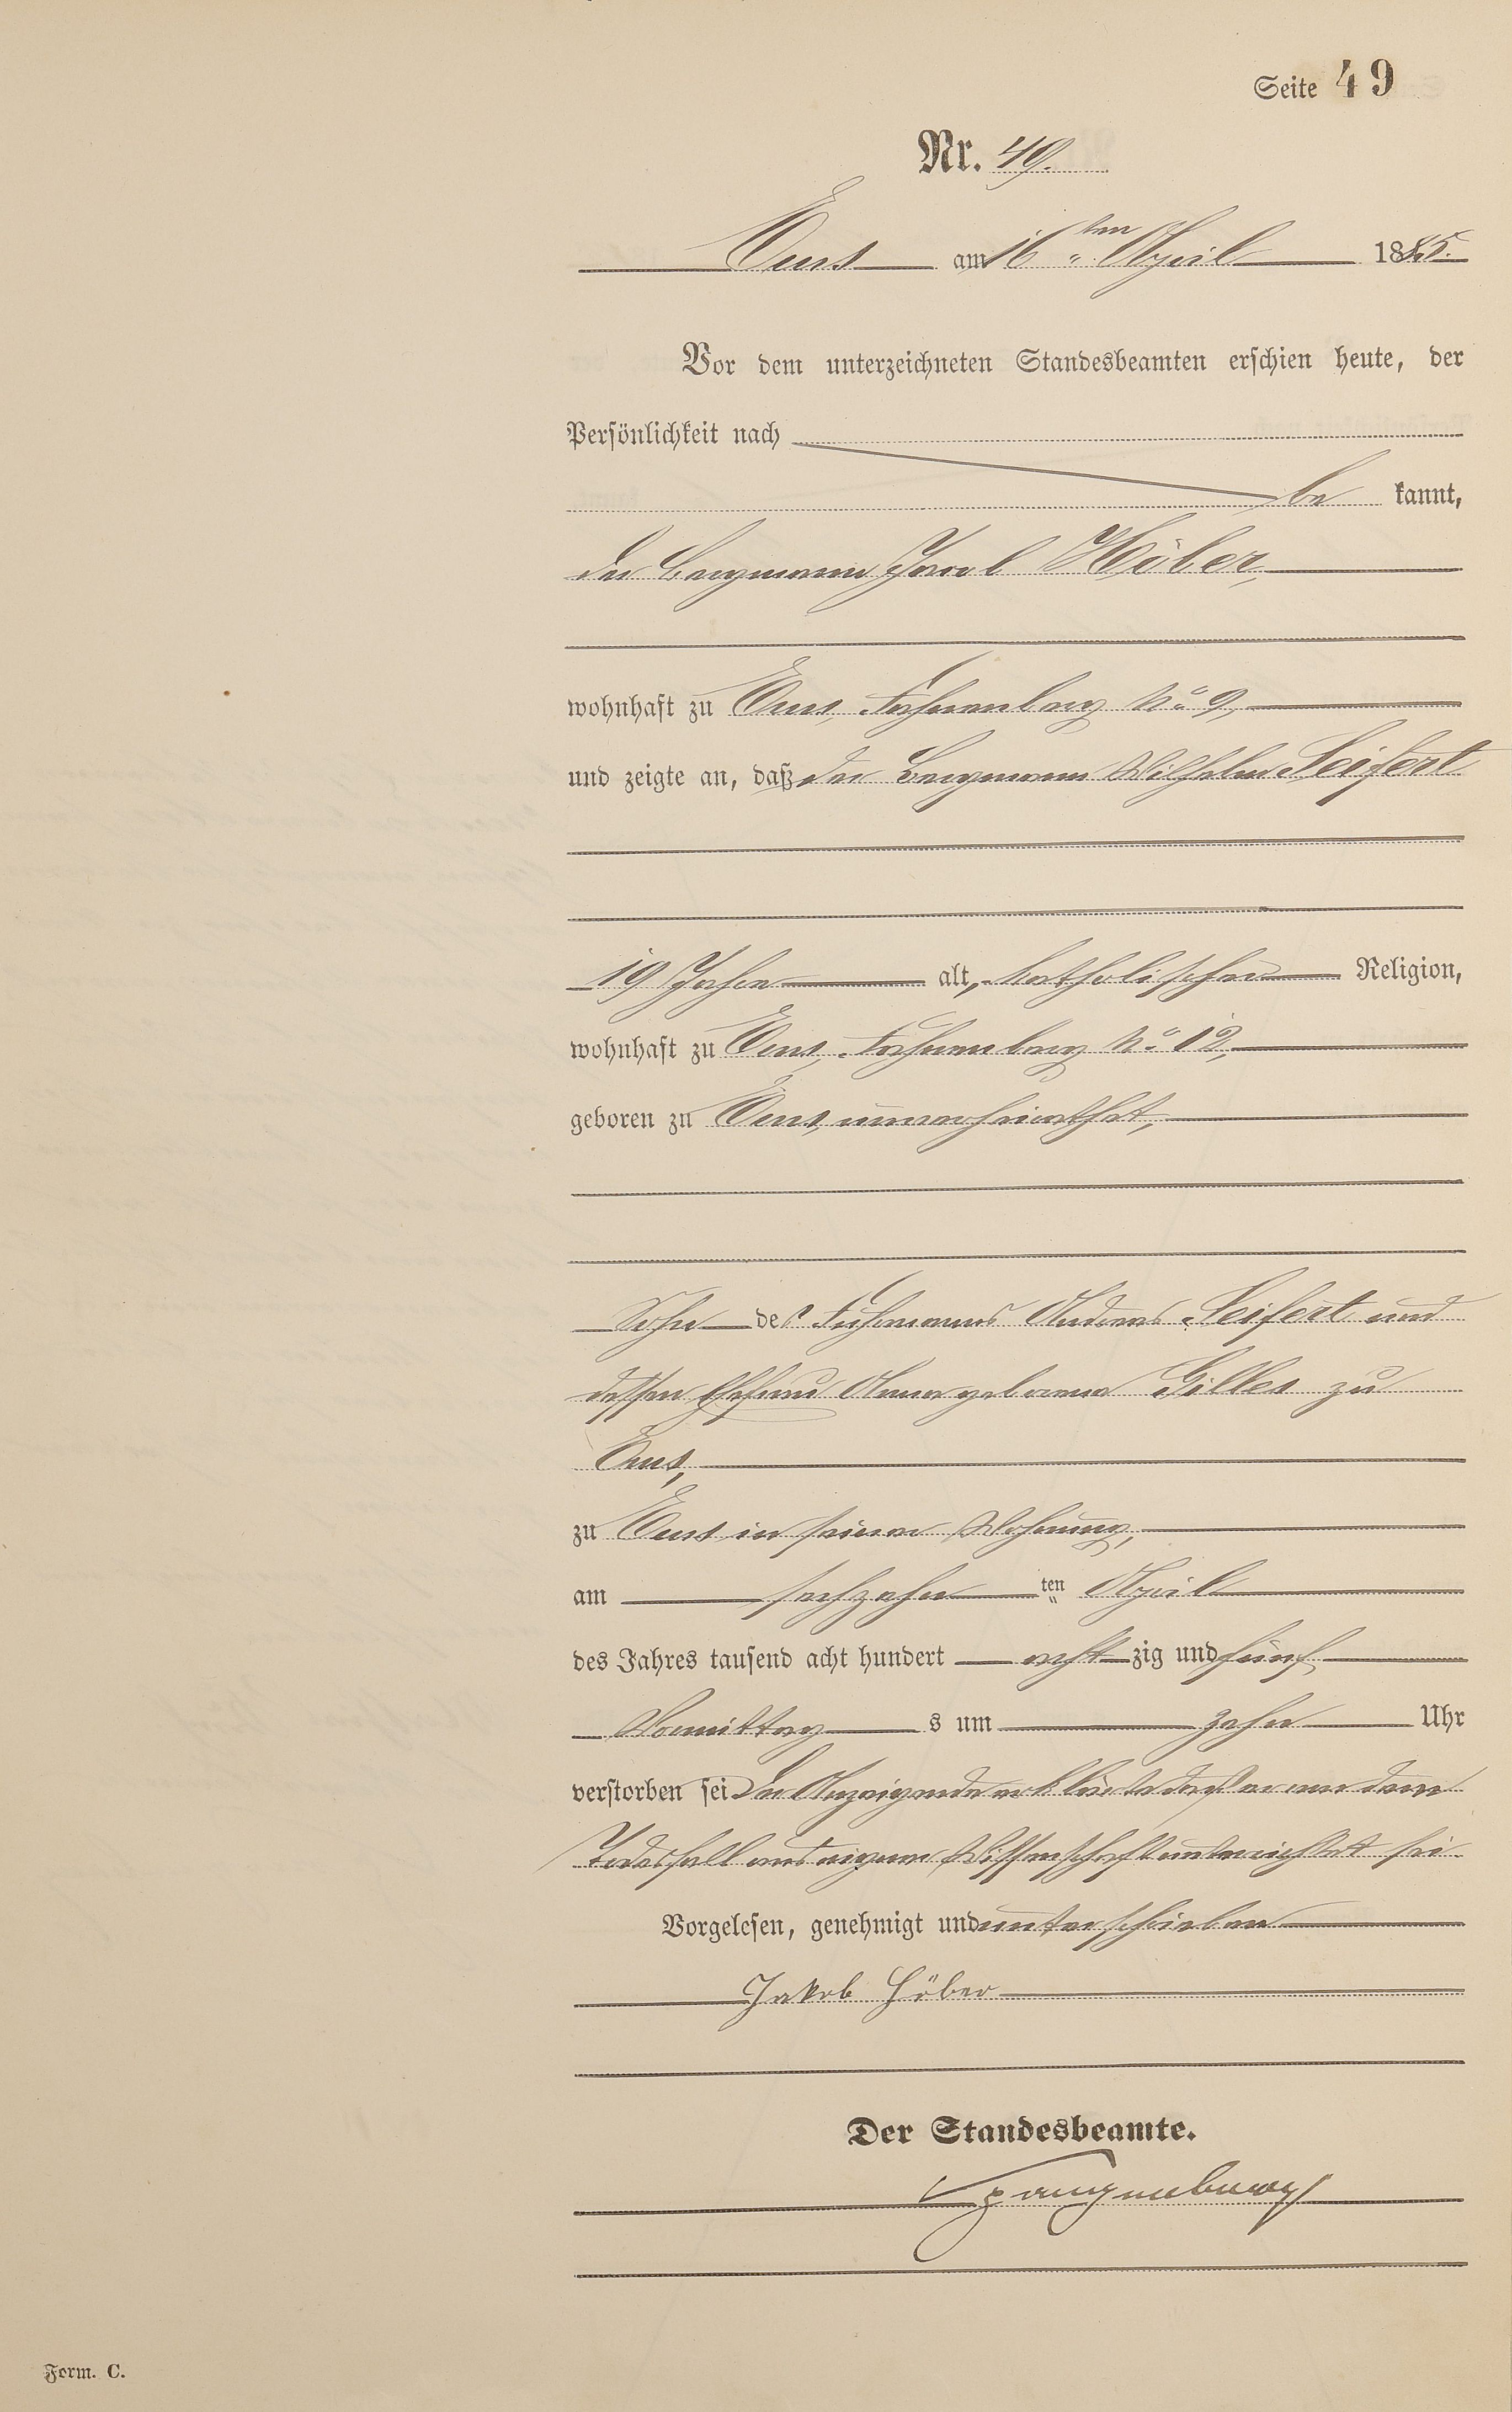 Seite 49
Nr. 49.
Ems am 16ten April 1885.
Vor dem unterzeichneten Standesbeamten erschien heute, der
Persönlichkeit nach
be kannt,
der Bergmann Jacob Höber,
wohnhaft zu Ems, Fahnenberg No 9,
und zeigte an, daß der Bergmann Wilhelm Seifert
19 Jahre alt, katholischer Religion,
wohnhaft zu Ems, Fahnenberg No 12,
geboren zu Ems, unverheirathet,
Sohn des Fuhrmanns Andreas Seifert und
dessen Ehefrau Anna geborene Gilles zu
Ems,
zu Ems in seiner Wohnung,
am sechzehn ten April
des Jahres tausend acht hundert acht zig und fünf
Vormittag s um zehn Uhr
verstorben sei Der Anzeigende erklärte daß er von dem
Todesfall aus eigener Wissenschaft unterrichtet sei.
Vorgelesen, genehmigt und unterschrieben
Jakob Höber
Der Standesbeamte.
Spangenberg
Form. C.